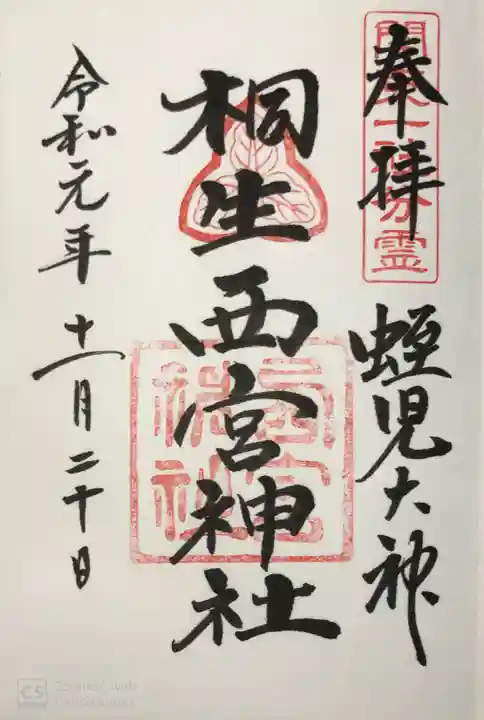 奉拝
蛭児大神
桐生西宮神社
令和元年 十一月二十日
CS
Scanned with
CamScanner